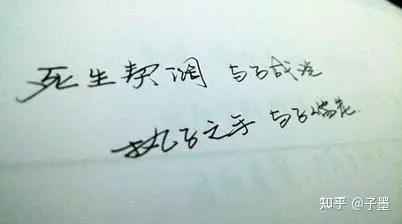 死生契阔 与子成说
执子之手 与子偕老
知乎 @子墨